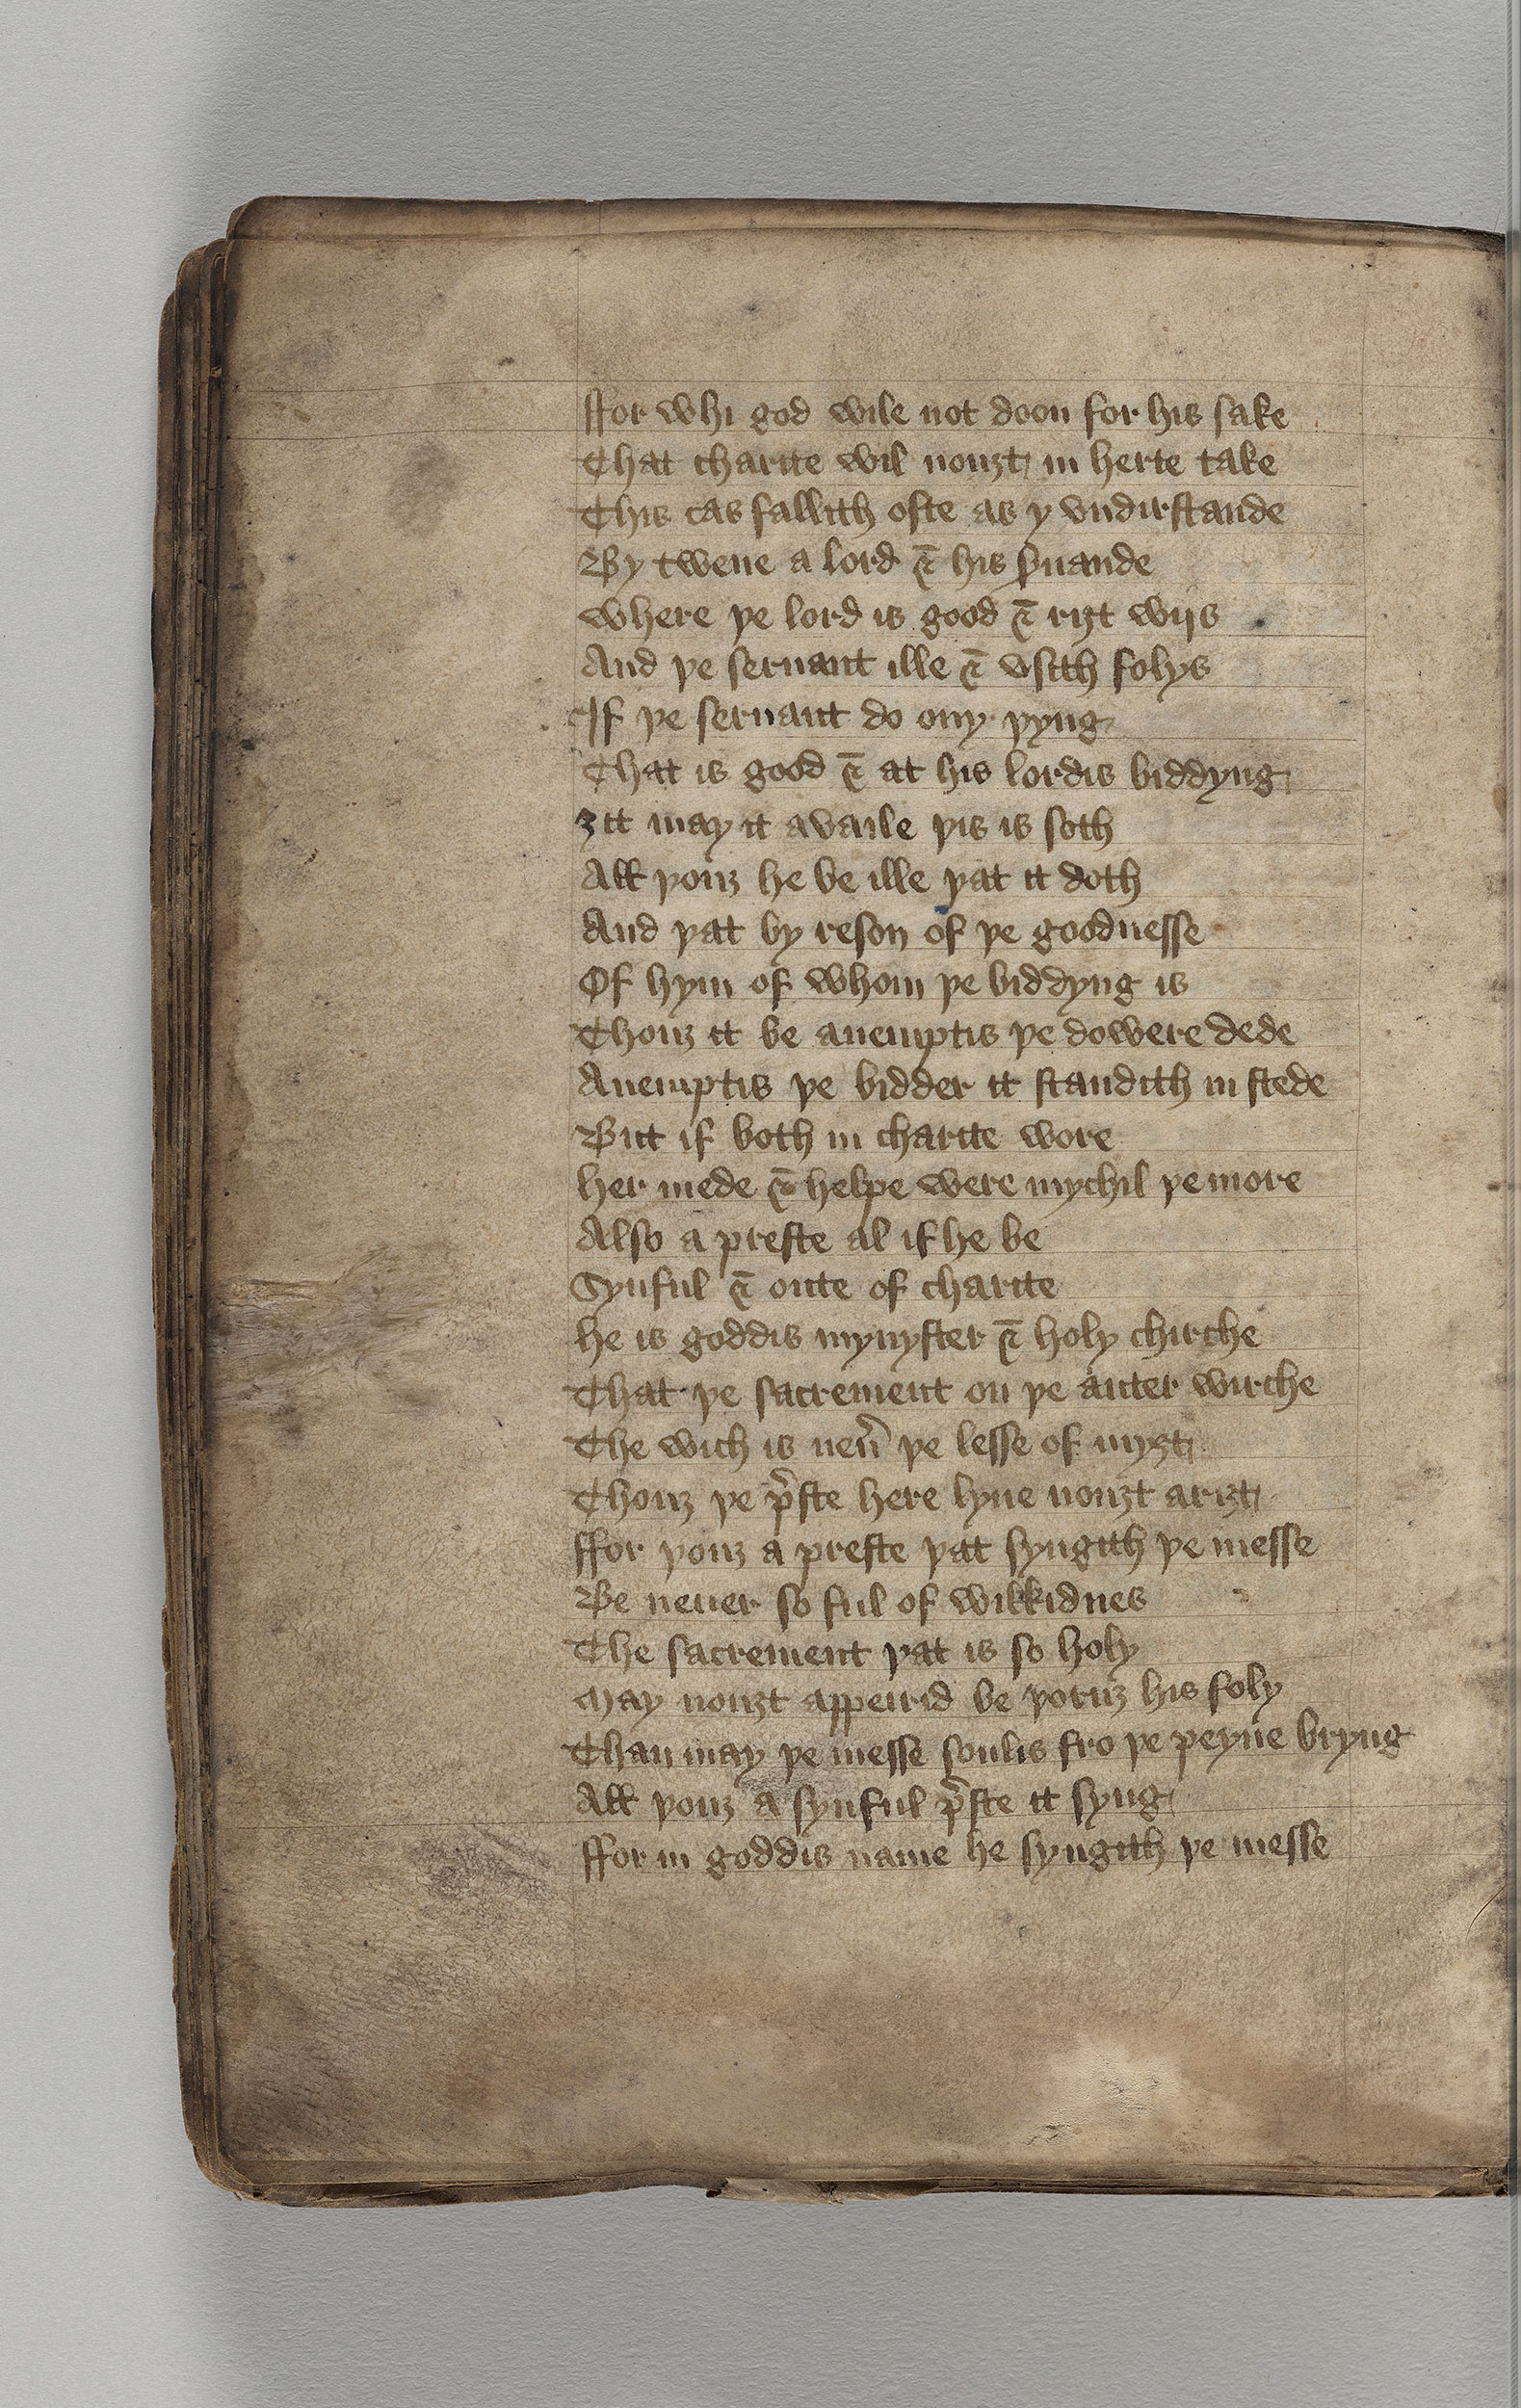 ffor whi god wile not doon for his sake
That charite wil nouȝt in herte take
This cas fallith ofte as y vndirstande
By twene a lord ⁊ his ẜuande
where þe lord is good ⁊ riȝt wijs
And þe seruant ille ⁊ vsith folys
If þe seruant do ony þyng
That is good ⁊ at his lordis biddyng
ȝit may it availe þis is soth
All þouȝ he be ille þat it doth
And þat by reson of þe goodnesse
Of hym of whom þe biddyng is
Thouȝ it be anemptis þe dowere dede
Anemptis þe bidder it standith in stede
But if both in charite wore
her mede ⁊ helpe were mychil þe more
Also a preste al if he be
Synful ⁊ oute of charite
he is goddis mynyster ⁊ holy chirche
That þe sacrement on þe auter wirche
The wich is neu̾ þe lesse of myȝt
Thouȝ þe p̾ste here lyue nouȝt ariȝt
ffor þouȝ a preste þat syngith þe messe
Be neuer so ful of wikkidnes
The sacrement þat is so holy
May nouȝt appeirid be þoruȝ his foly
Than may þe messe soulis fro þe peyne bryng
All þouȝ a synful p̾ste it syng
ffor in goddis name he syngith þe messe